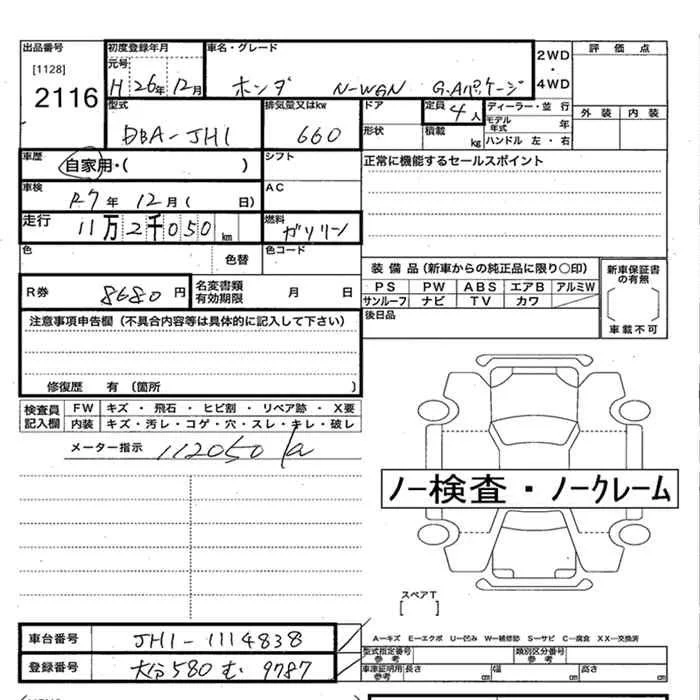 出品番号
[1128]
2116
初度登録年月
元号
H 26年 12月
車名・グレード
ホンダ N-WGN G.Aパッケージ
2WD
・
4WD
評価点
外装 内装
型式
DBA-JH1
排気量又はkw
660
ドア
形状
定員
4人
積載
kg
ディーラー・並行
モデル年式 年
ハンドル 左・右
車歴
自家用・( )
シフト
正常に機能するセールスポイント
車検
R7年 12月( 日)
AC
走行
11万2千050km
燃料
ガソリン
色
色替
色コード
装備品(新車からの純正品に限り〇印)
PS PW ABS エアB アルミW
サンルーフ ナビ TV カワ
新車保証書の有無
車載不可
R券
8680円
名変書類有効期限 月 日
後日品
注意事項申告欄(不具合内容等は具体的に記入して下さい)
修復歴 有(箇所 )
検査員記入欄
FW キズ・飛石・ヒビ割・リペア跡・X要
内装 キズ・汚レ・コゲ・穴・スレ・キレ・破レ
メーター指示 112050
ノー検査・ノークレーム
スペアT
[ ]
車台番号
JH1-1114838
登録番号
大分580む 9787
A−キズ E−エクボ U−凹み W−補修跡 S−サビ C−腐食 XX−交換済
型式指定番号参考
類別区分番号参考
車検証明用参考 長さ cm 幅 cm 高さ cm